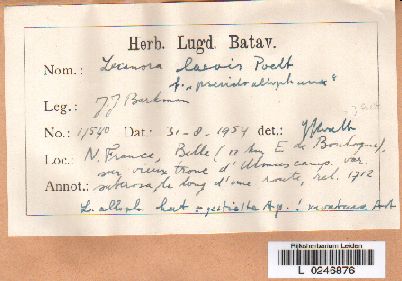 Herb. Lugd. Batav.
Nom.: Lecanora laevis Poelt
f. "pseudoallophana"
Leg.: JJ Barkman
No.: 1/540 Dat: 31-8-1954 det.:
Loc.: N. France, Belle (12 km E de Boulogne),
sur vieux tronc d'Ulmus camp. var.
Annot.: suberosa, le long d'une route, rel. 1712
L. alloph.
Rijksherbarium Leiden
L 0246876